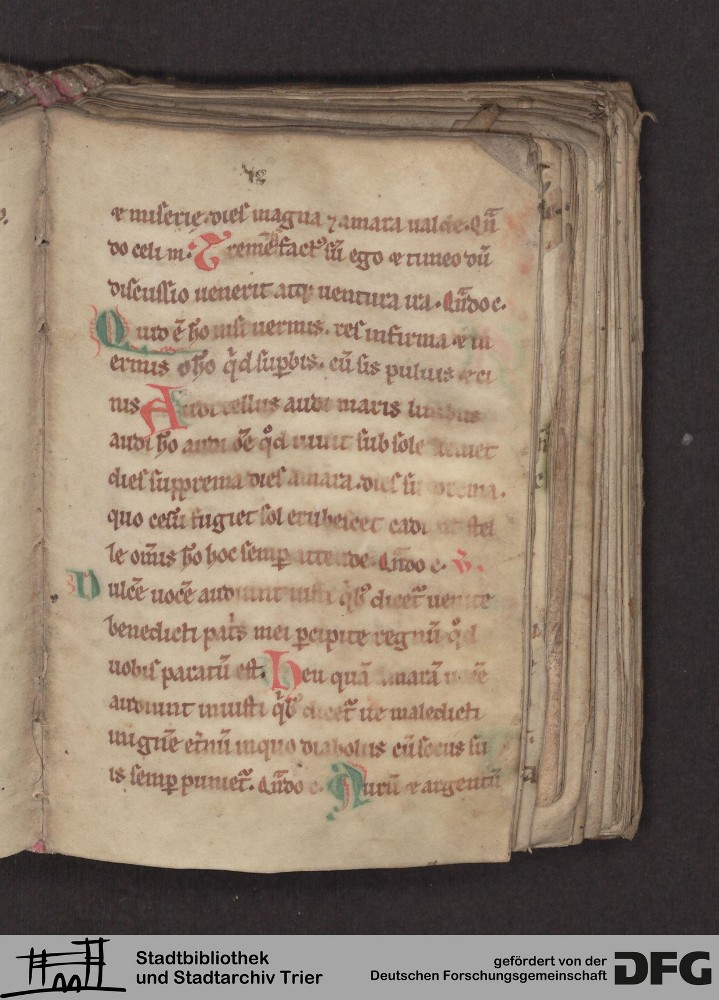 42
et miserie dies magna ⁊ amara ualde. Qn̄
do celi m. Tremēs fact᷒ sū ego et timeo dū
discussio uenerit atq; uentura ira. Qn̄do c.
Quid ē hō nisi uermis. res infirma et in
ermis o hō q̊d sup̄bis. cū sis puluis et ci
nis Audi tellus audi maris limbus
audi hō audi ōe q̊d uiuit sub sole
dies suprema dies amara. dies suprema.
quo celū fugiet sol erubescet stel
le om̄is hō hoc semp̄ attende. Qn̄do c. V.
Dulcē uocē audiunt iusti q̄b᷒ dicet᷑ uenite
benedicti pat̄s mei p̄cipite regnū q̊d
uobis paratū est. Heu quā amarā
audiunt iniusti q̄b᷒ dicet᷑ ue maledicti
in ignē et̄nū in quo diabolus cū sociis su
is semp̄ puniet᷑. Qn̄do c. Aurū et argentū
Stadtbibliothek
und Stadtarchiv Trier
gefördert von der
Deutschen Forschungsgemeinschaft
DFG